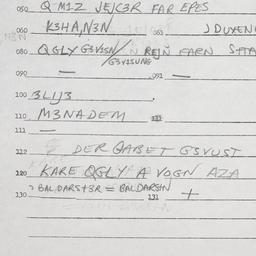 050 Q M1Z JEJG3R FAR EPES
060 K3HA,N3N 063 J DUYEN
080 QGLY G3V1SN/ REJN FARN
G3V1SUNG
090 — 091 —
100 3LIJ3
110 M3NADEM
111 —
112 DER QABET G3VUST
120 KARE QGLY A VOGN AZA
? BALDARST3R = BALDARSHN
130 131 +